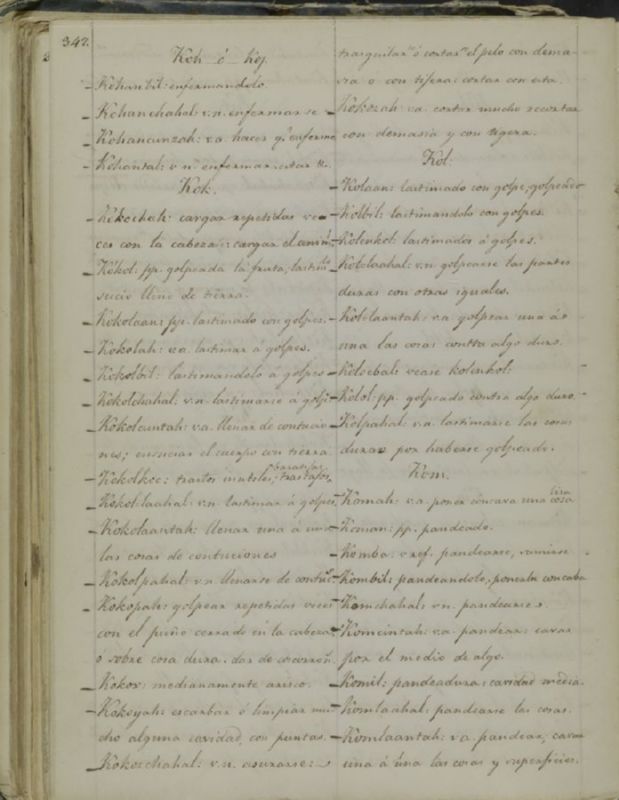 342.
Koh ó Koj.
Kohanbil: enfermandolo.
Kohanchahal: v.n. enfermarse
Kohancunzah: v.a. hacer q.e enferme
Kohantal: v.n. enfermar, estar
Kok.
Kokochah: cargar repetidas ve-
ces con la cabeza: cargar el
Kokol: pp. golpeada la fruta,
sucio lleno de tierra.
Kokolaan: pp. lastimado con golpes.
Kokolah: v.a. lastimar á golpes.
Kokolbil: lastimandolo á golpes
Kokolchahal: v.n. lastimarse á golp
Kokolcuntah: v.a. llenar de contucio
nes; ensuciar el cuerpo con tierra
baratijas
Kokolkoc: trastos inutiles, trastajos,
Kokol-laahal: v.n. lastimar á golpes,
Kokolaantah: llenar una á una
las cosas de contuciones
Kokolpahal: v.n. llenarse de
Kokopah: golpear repetidas veces
con el puño cerrado en la cabeza,
ó sobre cosa dura. dar de
Kokox: medianamente arisco.
Kokoyah: escarbar ó limpiar mu
cho alguna cavidad, con puntas.
Kokozchahal: v.n. asurarse:
trasquilar ó cortar el pelo con dema-
sia o con tijera: cortar con esta.
Kokozah: v.a. cortar mucho recortar
con demasia y con tigera.
Kol.
Kolaan: lastimado con golpe, golpeado
Kolbil: lastimandolo con golpes.
Kolenkol: lastimados á golpes.
Kol-laahal: v.n. golpearse las partes
duras con otras iguales.
Kol-laantah: v.a. golpear una á
una las cosas contra algo duro.
Kolcebal: vease kolenkol:
Kolol: pp. golpeado contra algo duro.
Kolpahal: v.n. lastimarse las cosas
duras por haberse golpeado.
Kom.
Komah: v.a. poner concava una cosa
Koman: pp. pandeado.
Komba: v.ref. pandearse, sumirse
Kombil: pandeandolo, ponerla concaba
Komchahal: v.n. pandearse.
Komcintah: v.a. pandear: cavar
por el medio de algo.
Komil: pandeadura: cavidad media.
Komlaahal: pandearse las cosas.
Komlaantah: v.a. pandear, cavar
una á una las cosas y superficies.